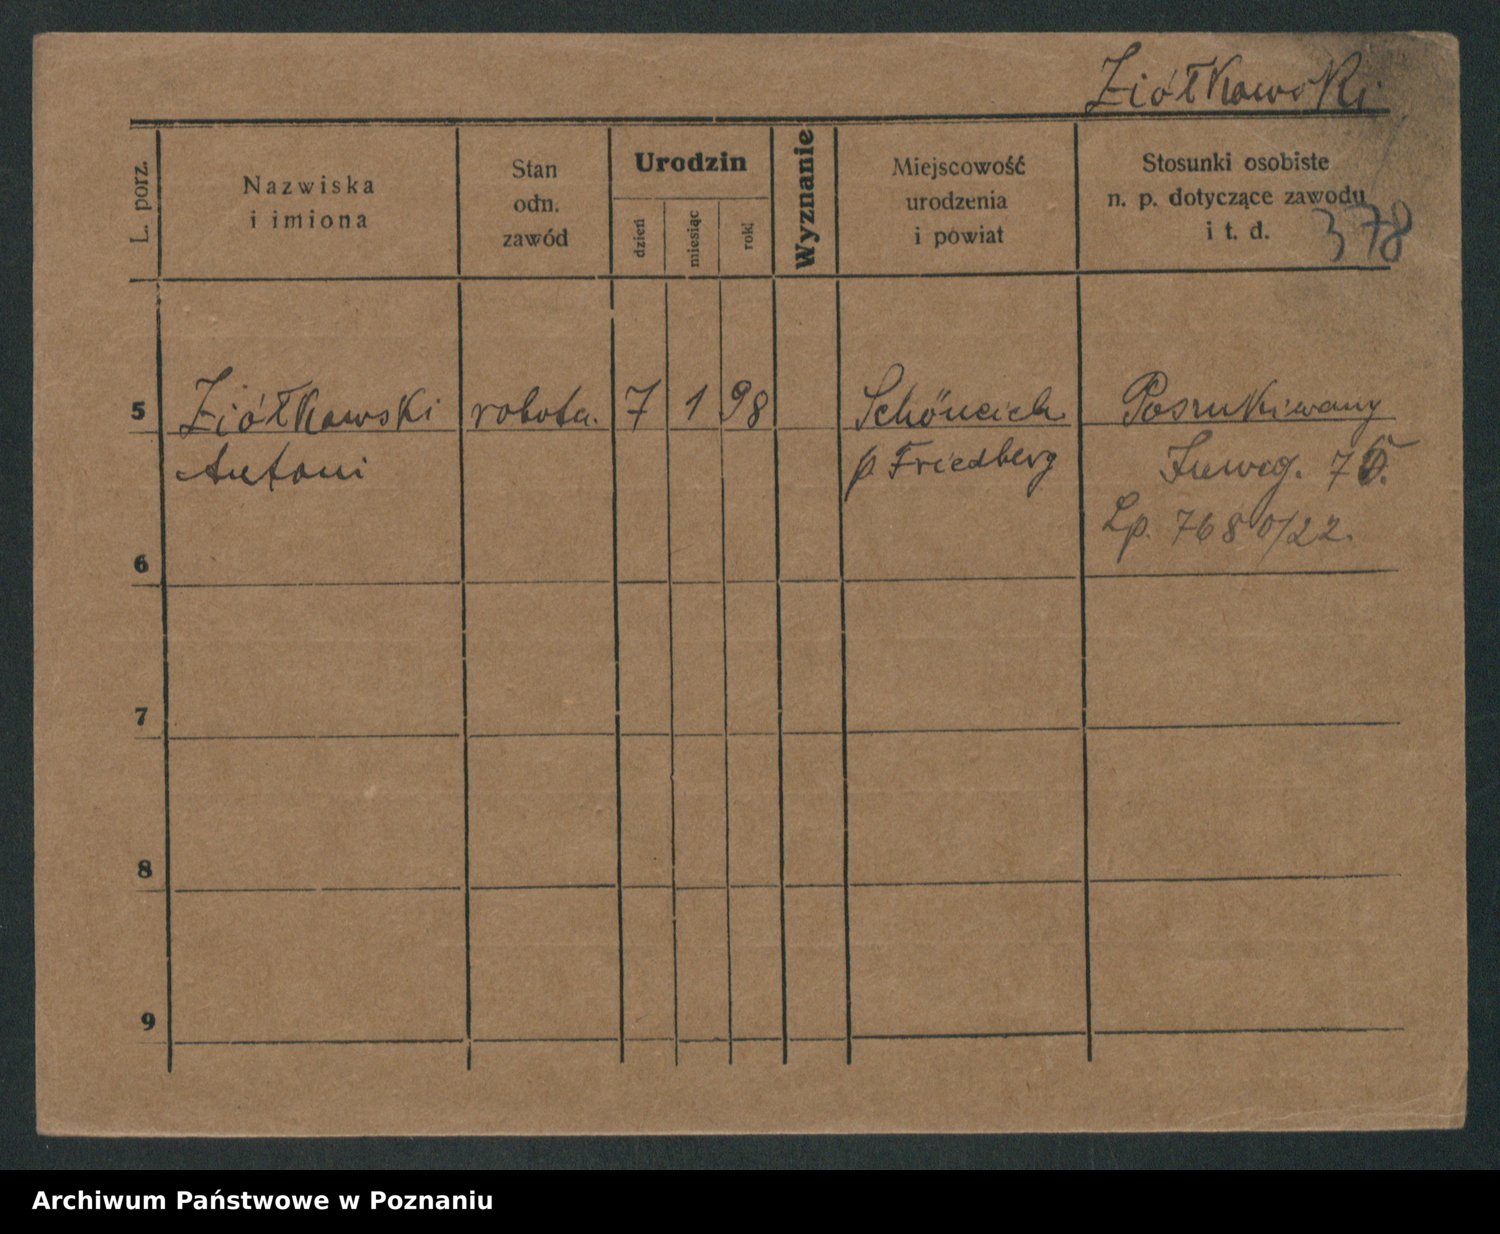 Ziółkowski
L. porz.
Nazwiska
i imiona
Stan
odn.
zawód
Urodzin
dzień
miesiąc
rok
Wyznanie
Miejscowość
urodzenia
i powiat
Stosunki osobiste
n. p. dotyczące zawodu
i t. d.
378
5 Ziółkowski robotn. 7 1 98 Poszukiwany
Antoni p Friedberg
Lp. 7680/22.
6
7
8
9
Archiwum Państwowe w Poznaniu